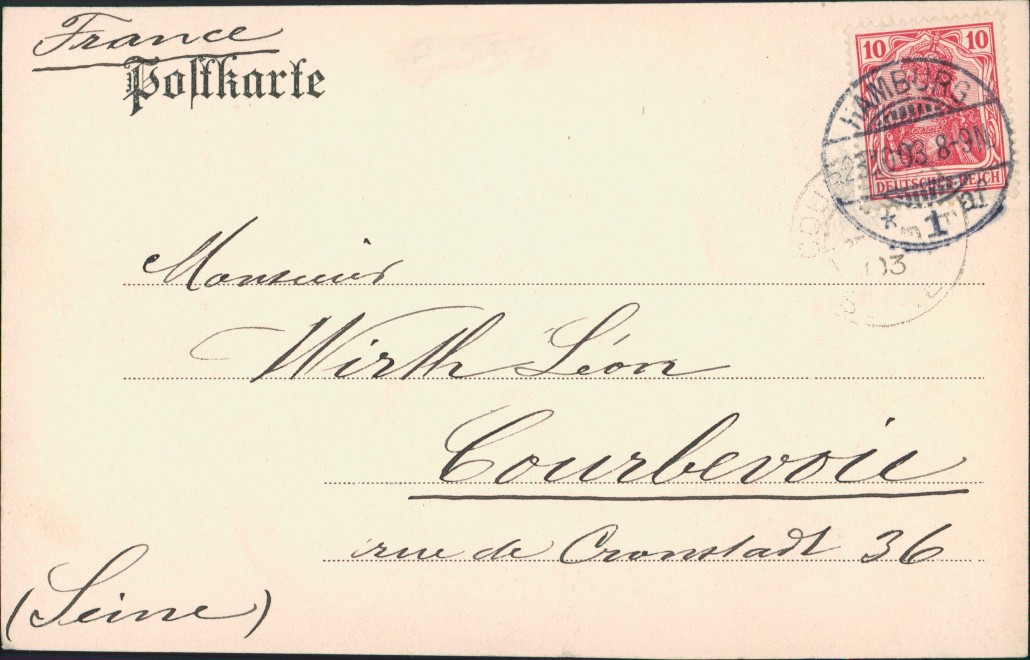 France
Postkarte
10 10
DEUTSCHES REICH
HAMBURG
23.10.03 8-9N
* 1
03
Monsieur
Wirth Léon
Courbevoie
rue de Cronstadt 36
(Seine)